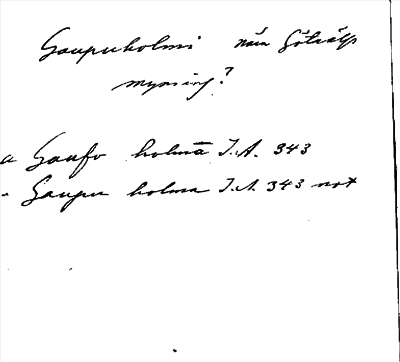 Gaupuholmi nära Götaälfs
mynning?
a Gaufo holmā I.A. 343
- Gaupu holma I.A. 343 not